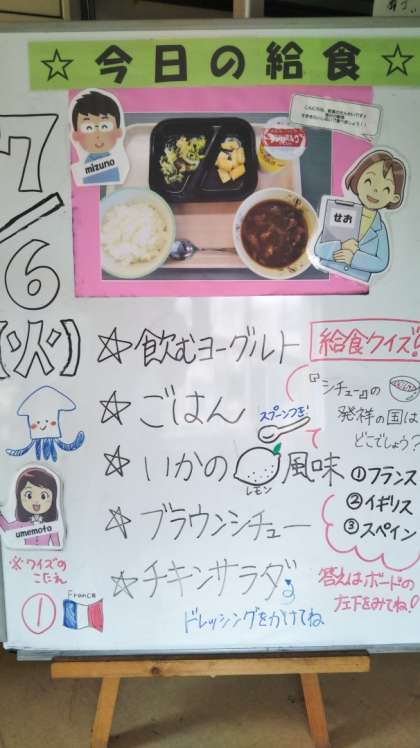 ☆今日の給食☆
7/6
(火)
mizuno
せお
☆飲むヨーグルト
☆ごはん
スプーンつき
☆いかの
レモン
風味
☆ブラウンシチュー
☆チキンサラダ
ドレッシングをかけてね
給食クイズ
『シチュー』の
発祥の国は
どこでしょう?
①フランス
②イギリス
③スペイン
答えはボードの
左下をみてね!
umemoto
※クイズの
こたえ
①
France